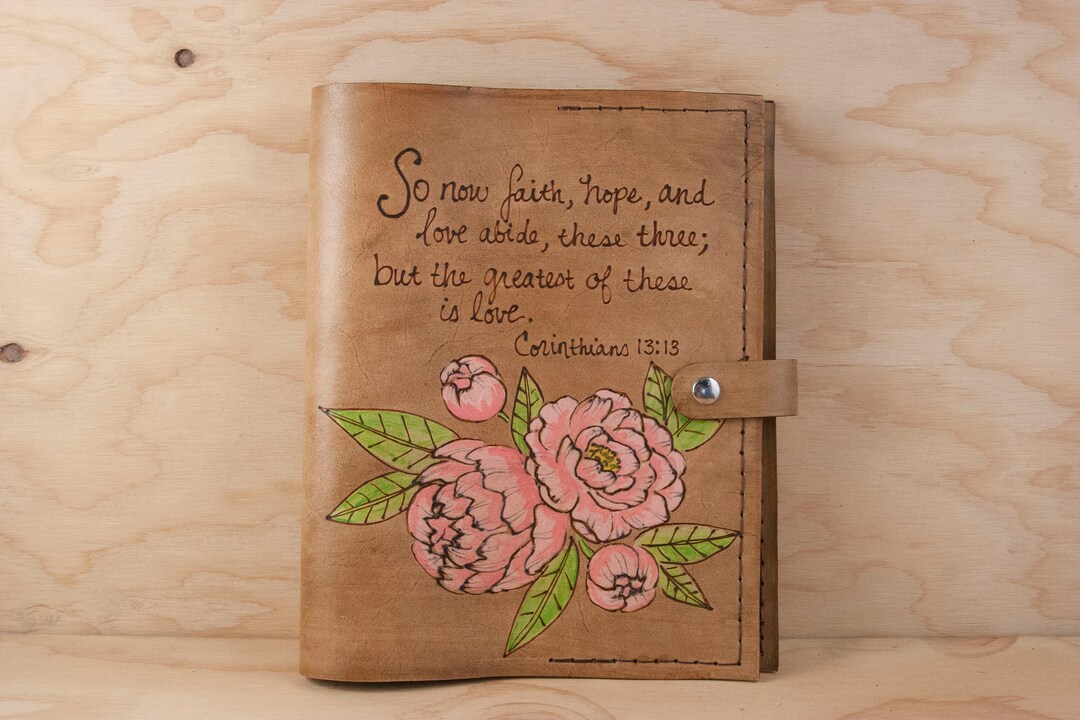 So now faith, hope, and
love abide, these three;
but the greatest of these
is love.
Corinthians 13:13